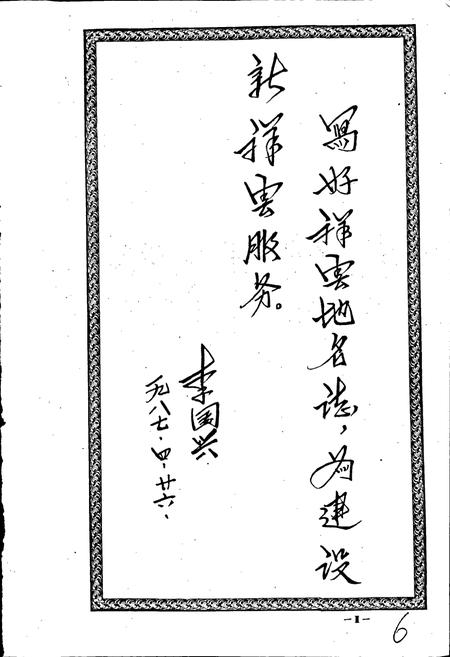 寫好祥雲地名誌，为建设
新祥雲服务。
李国兴
一九八七·四·廿六·
-1-
6